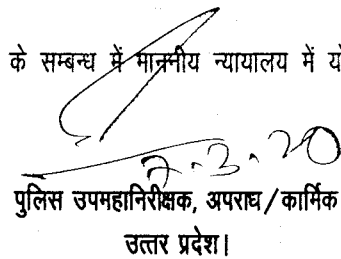 के सम्बन्ध में माननीय न्यायालय में
7.3.20
पुलिस उपमहानिरीक्षक, अपराध/कार्मिक
उत्तर प्रदेश।